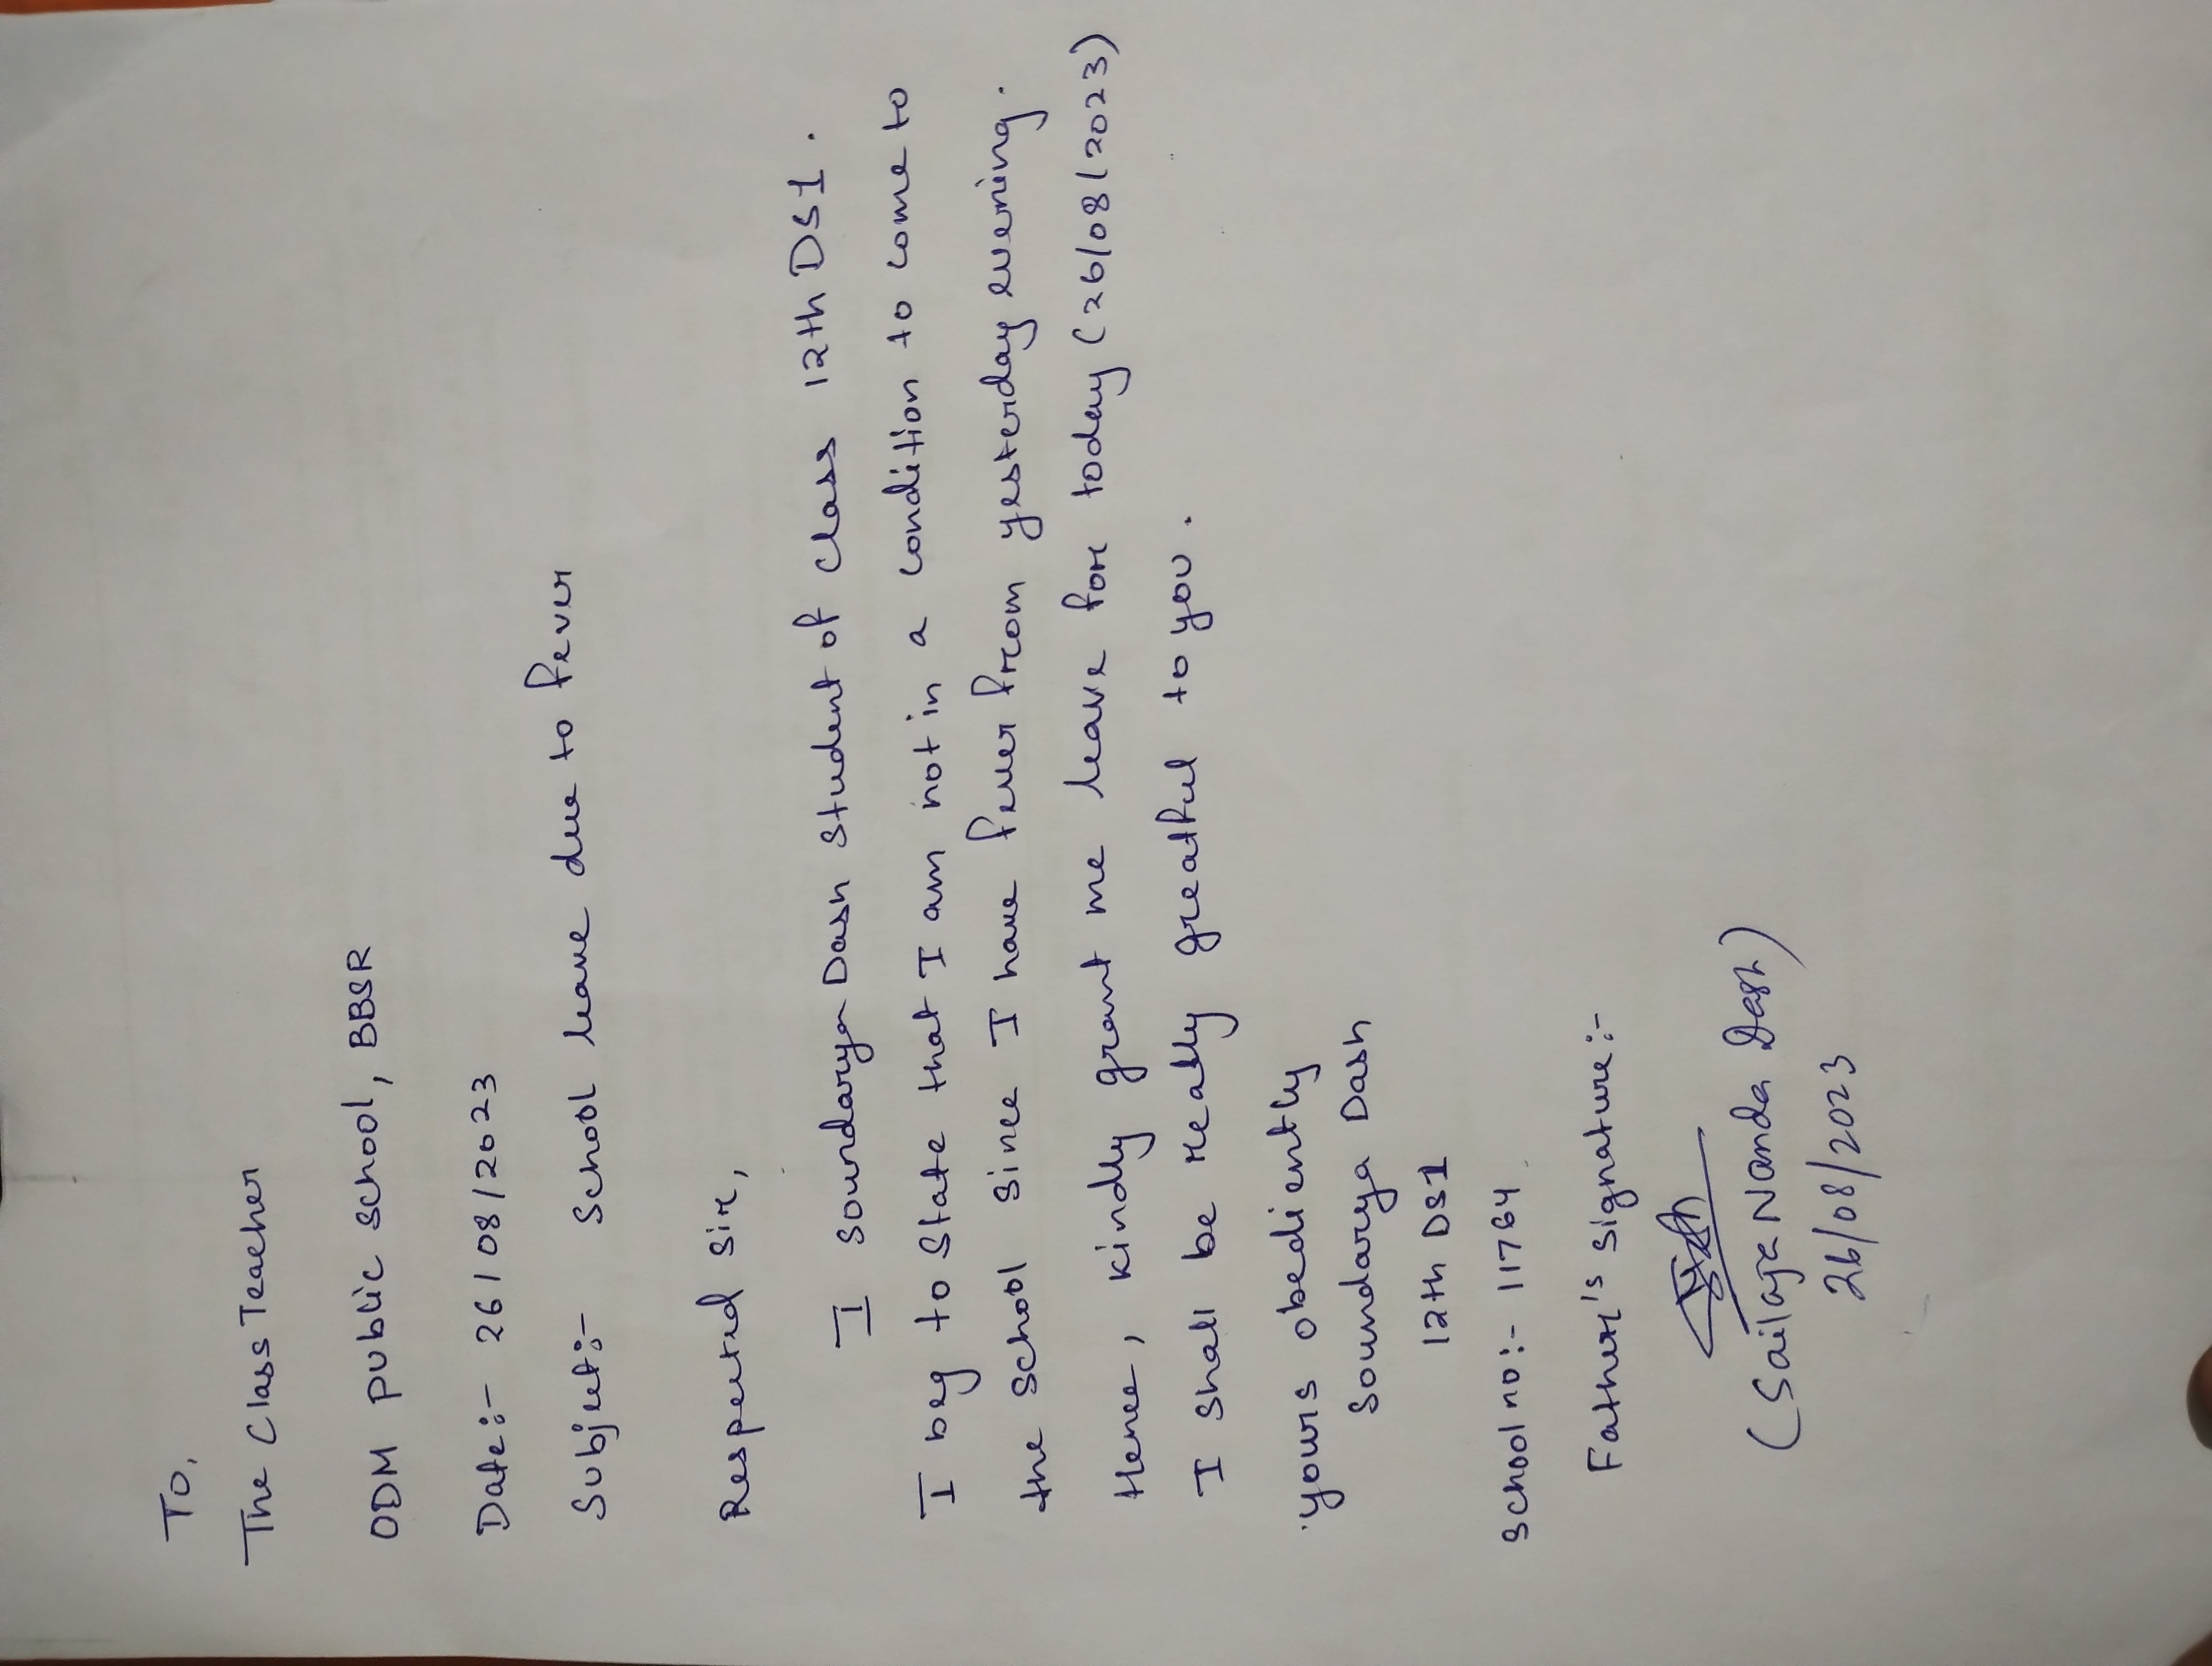 To,
The Class Teacher
ODM Public School, BBSR
Date:- 26/08/2023
Subject:- School leave due to fever
Respected Sir,
I Soundarya Dash student of class 12th DS1.
I beg to state that I am not in a condition to come to
the school since I have fever from yesterday evening.
Hence, kindly grant me leave for today (26/08/2023)
I shall be really greatful to you.
Yours obediently
Soundarya Dash
12th DS1
School no:- 11764
Father's signature:-
(Sailaja Nanda Dash)
26/08/2023